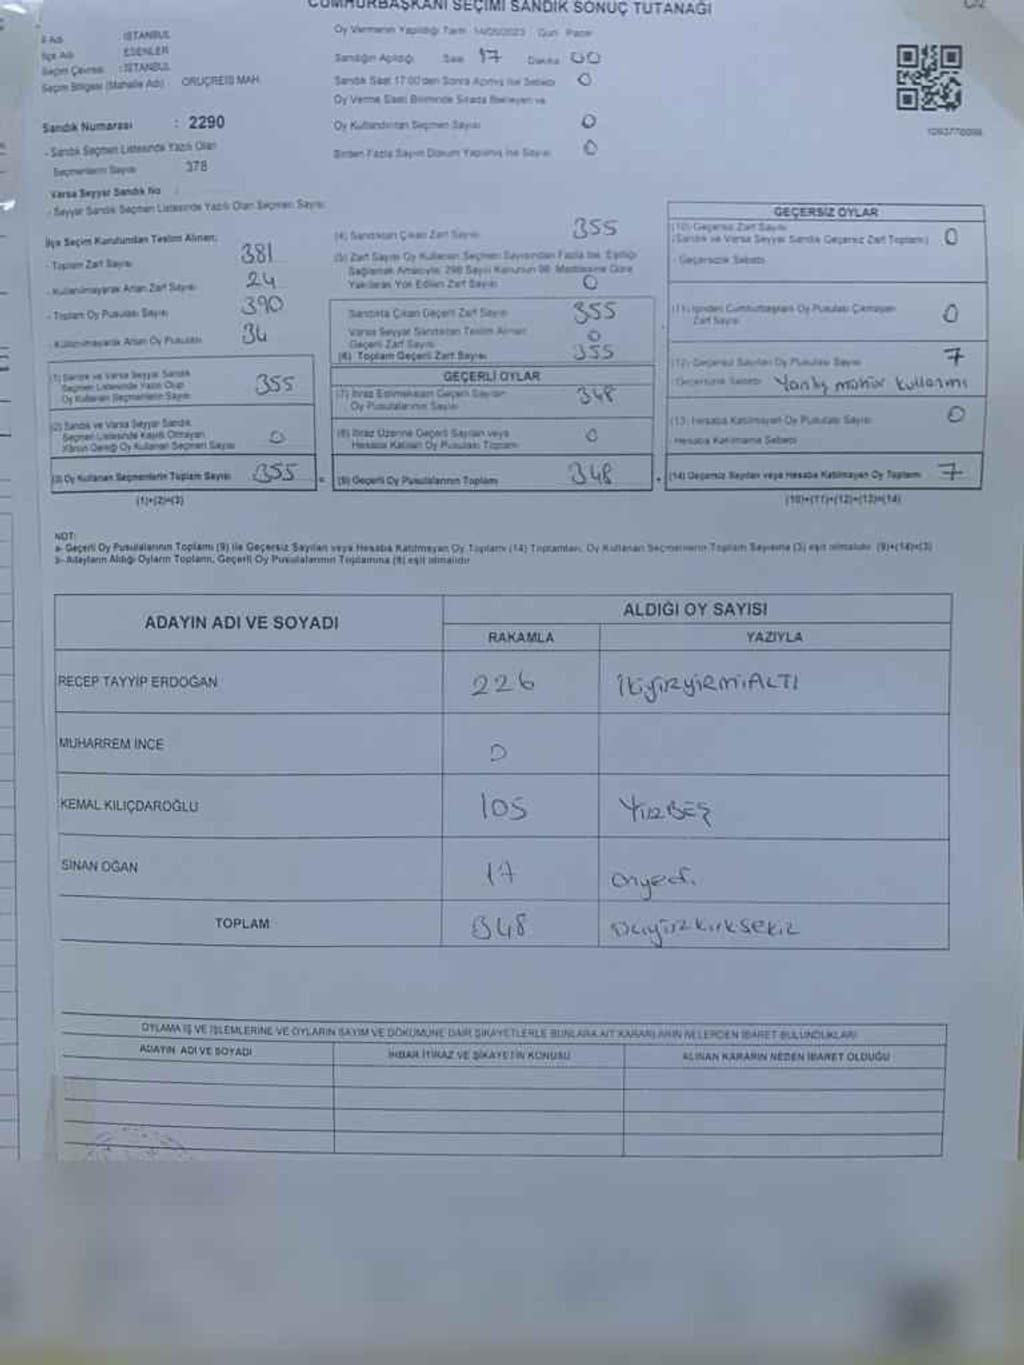 CUMHURBAŞKANI SEÇİMİ SANDIK SONUÇ TUTANAĞI
İl Adı : İSTANBUL
İlçe Adı : ESENLER
Seçim Çevresi : İSTANBUL
Seçim Bölgesi (Mahalle Adı) : ORUÇREİS MAH.
Sandık Numarası : 2290
- Sandık Seçmen Listesinde Yazılı Olan
Seçmenlerin Sayısı : 378
Varsa Seyyar Sandık No :
- Seyyar Sandık Seçmen Listesinde Yazılı Olan Seçmen Sayısı:
Oy Vermenin Yapıldığı Tarih 14/05/2023 Gün Pazar
Sandığın Açıldığı Saat 17 Dakika 00
Sandık Saat 17:00'den Sonra Açılmış İse Sebebi 0
Oy Verme Saati Bitiminde Sırada Bekleyen ve
Oy Kullandırılan Seçmen Sayısı 0
Birden Fazla Sayım Döküm Yapılmış İse Sayısı 0
İlçe Seçim Kurulundan Teslim Alınan;
- Toplam Zarf Sayısı 381
- Kullanılmayarak Artan Zarf Sayısı 24
- Toplam Oy Pusulası Sayısı 390
- Kullanılmayarak Artan Oy Pusulası 34
(1) Sandık ve Varsa Seyyar Sandık
Seçmen Listesinde Yazılı Olup
Oy Kullanan Seçmenlerin Sayısı 355
(2) Sandık ve Varsa Seyyar Sandık
Seçmen Listesinde Kayıtlı Olmayan
Kanun Gereği Oy Kullanan Seçmen Sayısı 0
(3) Oy Kullanan Seçmenlerin Toplam Sayısı 355
(1)+(2)=(3)
(4) Sandıktan Çıkan Zarf Sayısı 355
(5) Zarf Sayısı Oy Kullanan Seçmen Sayısından Fazla İse, Eşitliği
Sağlamak Amacıyla; 298 Sayılı Kanunun 98. Maddesine Göre
Yakılarak Yok Edilen Zarf Sayısı 0
Sandıkta Çıkan Geçerli Zarf Sayısı 355
Varsa Seyyar Sandıktan Teslim Alınan
Geçerli Zarf Sayısı 0
(6) Toplam Geçerli Zarf Sayısı 355
GEÇERLİ OYLAR
(7) İtiraz Edilmeksizin Geçerli Sayılan
Oy Pusulalarının Sayısı 348
(8) İtiraz Üzerine Geçerli Sayılan veya
Hesaba Katılan Oy Pusulası Toplamı 0
(9) Geçerli Oy Pusulalarının Toplamı 348
GEÇERSİZ OYLAR
(10) Geçersiz Zarf Sayısı
(Sandık ve Varsa Seyyar Sandık Geçersiz Zarf Toplamı) 0
- Geçersizlik Sebebi
(11) İçinden Cumhurbaşkanı Oy Pusulası Çıkmayan
Zarf Sayısı 0
(12) Geçersiz Sayılan Oy Pusulası Sayısı 7
- Geçersizlik Sebebi Yanlış mühür kullanımı
(13) Hesaba Katılmayan Oy Pusulası Sayısı 0
- Hesaba Katılmama Sebebi
(14) Geçersiz Sayılan veya Hesaba Katılmayan Oy Toplamı 7
(10)+(11)+(12)+(13)=(14)
NOT:
a- Geçerli Oy Pusulalarının Toplamı (9) ile Geçersiz Sayılan veya Hesaba Katılmayan Oy Toplamı (14) Toplamları, Oy Kullanan Seçmenlerin Toplam Sayısına (3) eşit olmalıdır. (9)+(14)=(3)
b- Adayların Aldığı Oyların Toplamı, Geçerli Oy Pusulalarının Toplamına (9) eşit olmalıdır
ADAYIN ADI VE SOYADI ALDIĞI OY SAYISI
RAKAMLA YAZIYLA
RECEP TAYYİP ERDOĞAN 226 İkiyüzyirmiALTI
MUHARREM İNCE 0
KEMAL KILIÇDAROĞLU 105 YüzBEŞ
SİNAN OĞAN 17 Onyedi
TOPLAM 348 üçyüzkırksekiz
OYLAMA İŞ VE İŞLEMLERİNE VE OYLARIN SAYIM VE DÖKÜMÜNE DAİR ŞİKAYETLERLE BUNLARA AİT KARARLARIN NELERDEN İBARET BULUNDUKLARI
ADAYIN ADI VE SOYADI İHBAR İTİRAZ VE ŞİKAYETİN KONUSU ALINAN KARARIN NEDEN İBARET OLDUĞU